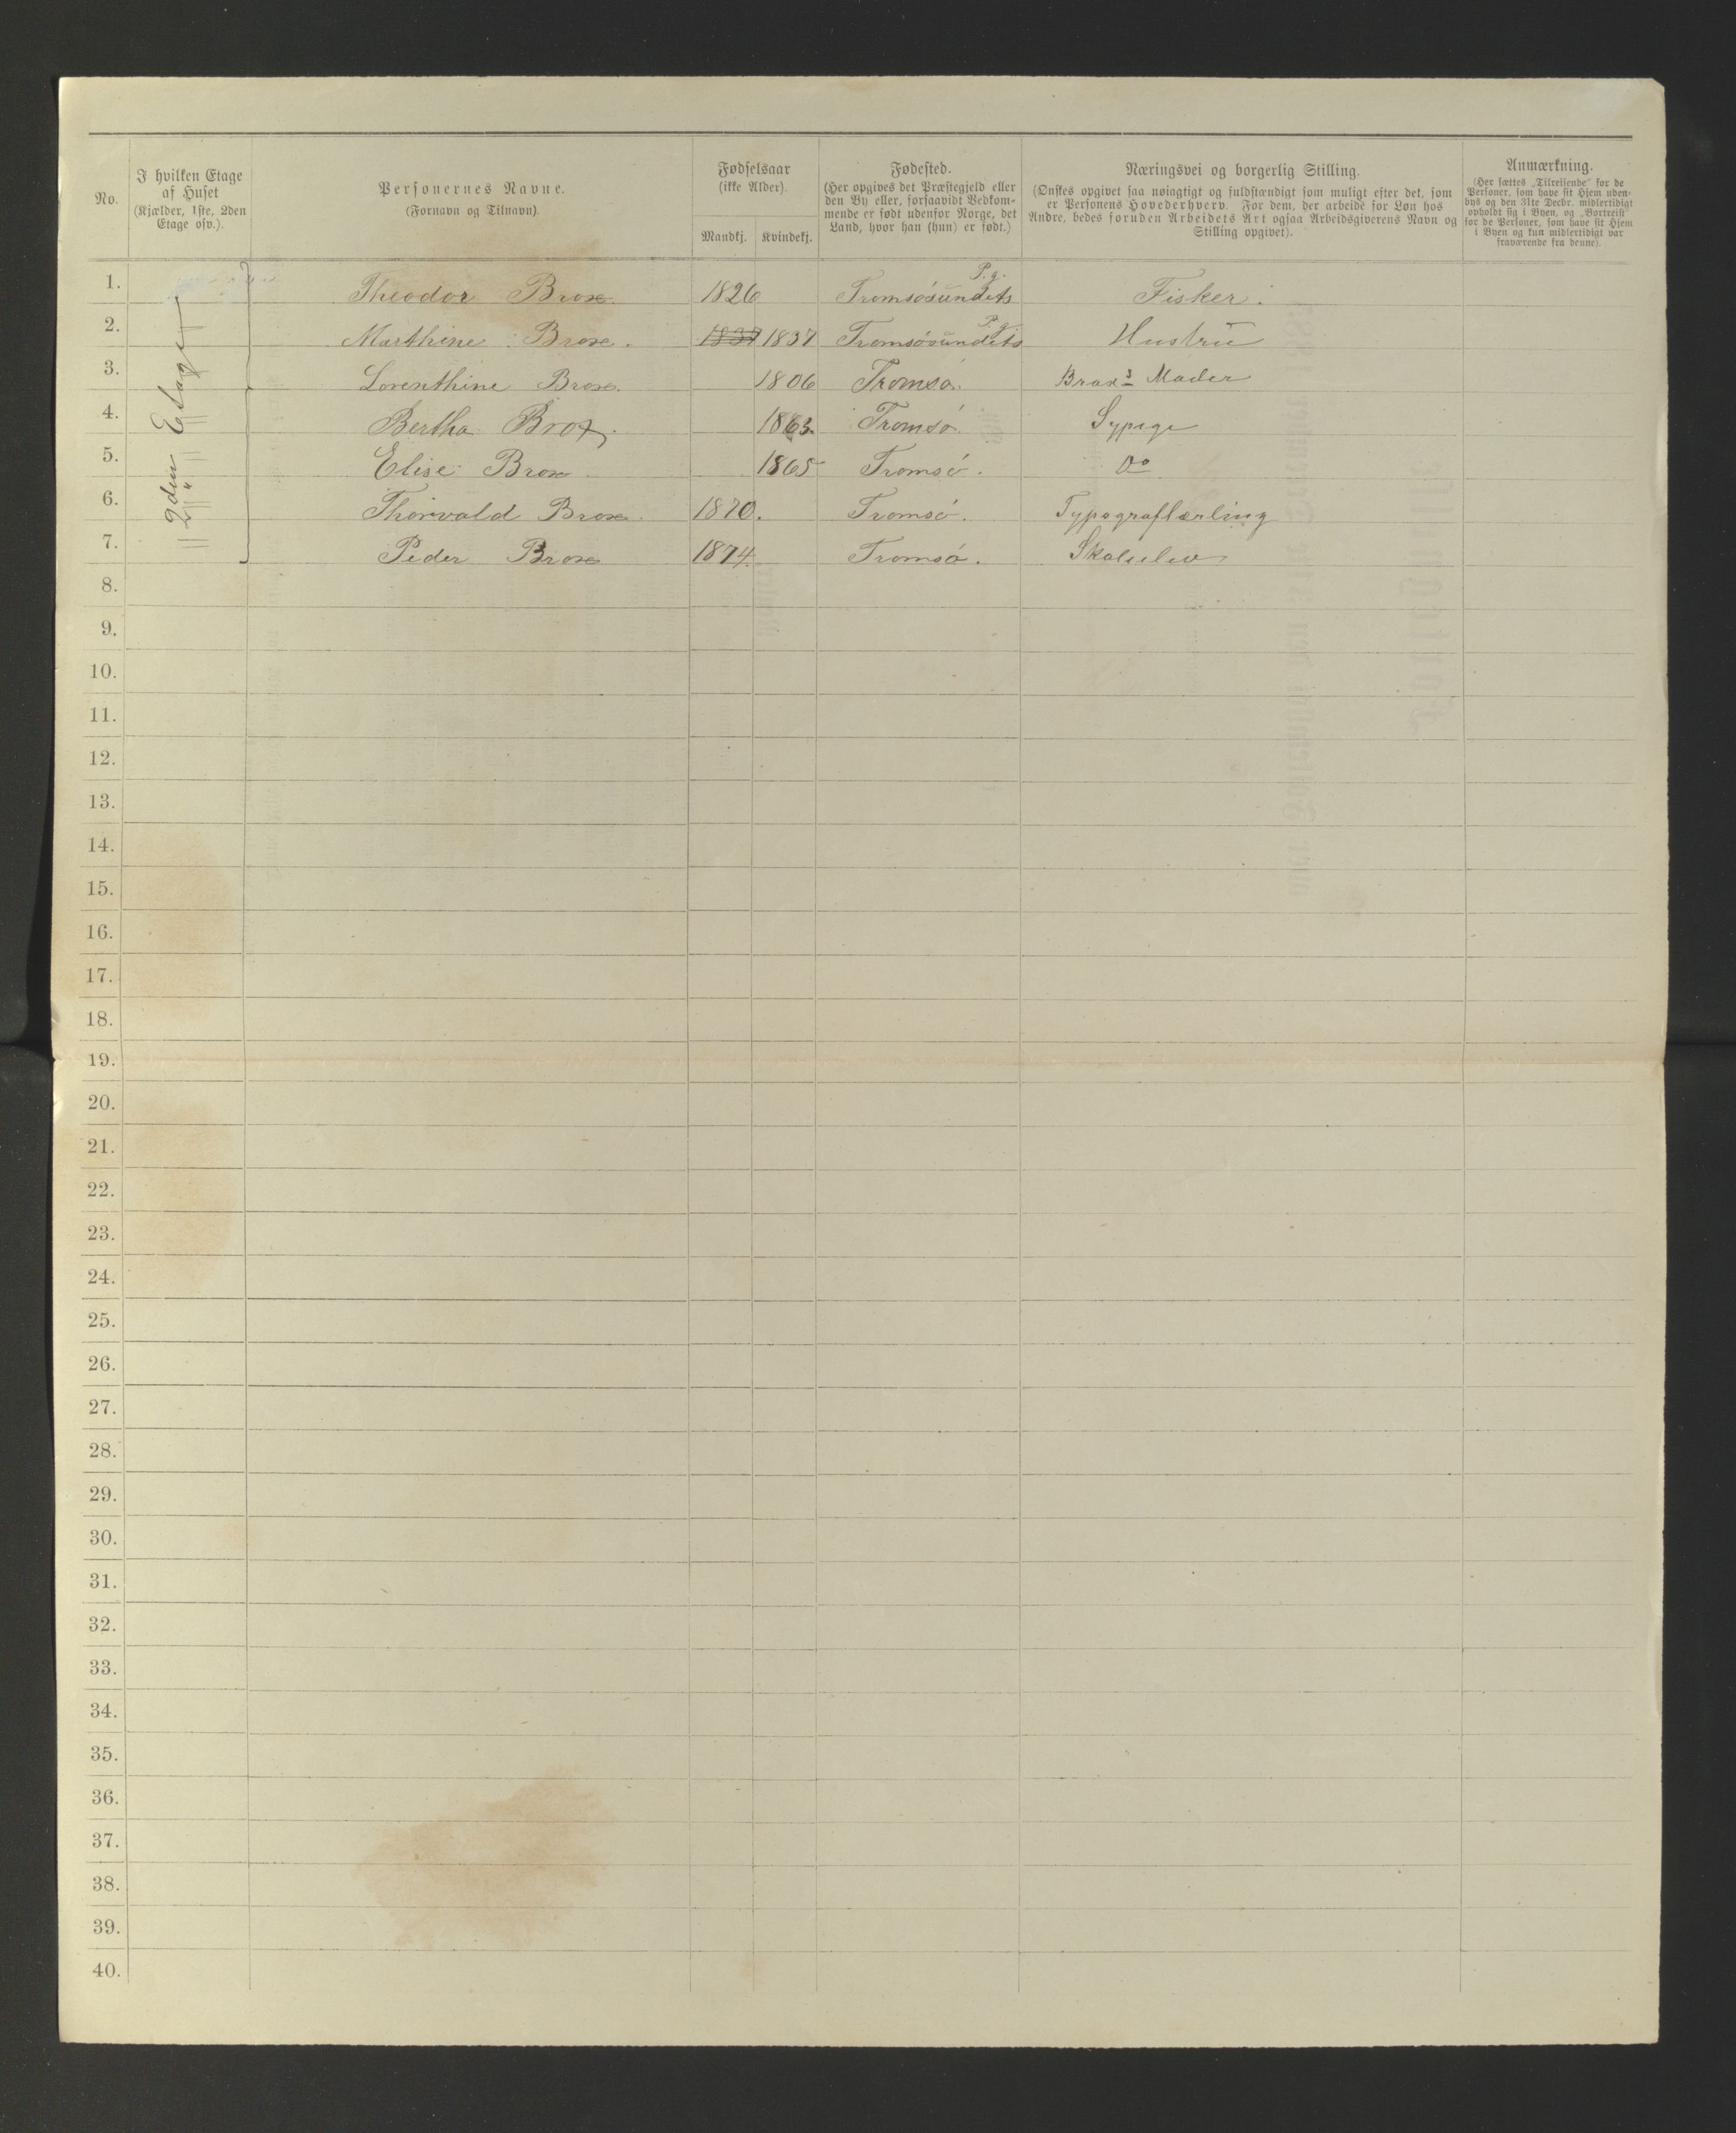 No.
I hvilken Etage
af Huset
(Kjælder, 1ste, 2den
Etage osv.).
Personernes Navne.
(Fornavn og Tilnavn).
Fødselsaar
(ikke Alder).
Mandkj. Kvindekj.
Fødested.
(Her opgives det Præstegjeld eller
den By eller, forsaavidt Vedkom-
mende er født udenfor Norge, det
Land, hvor han (hun) er født.)
Næringsvei og borgerlig Stilling.
(Ønskes opgivet saa nøiagtigt og fuldstændigt som muligt efter det, som
er Personens Hovederhverv. For dem, der arbeide for Løn hos
Andre, bedes foruden Arbeidets Art ogsaa Arbeidsgiverens Navn og
Stilling opgivet).
Anmærkning.
(Her sættes „Tilreisende“ for de
Personer, som have sit Hjem uden-
bys og den 31te Decbr. midlertidigt
opholdt sig i Byen, og „Bortreist“
for de Personer, som have sit Hjem
i Byen og kun midlertidigt var
fraværende fra denne).
2den Etage
1. Theodor Brox. 1826 Tromsøsundets P.g. Fisker.
2. Marthine Brox. 1837 1837 Tromsøsundets P.g. Hustru
3. Lorenthine Brox. 1806 Tromsø. Brox's Moder
4. Bertha Brox. 1863. Tromsø. Sypige
5. Elise Brox 1865 Tromsø. Do
6. Thorvald Brox. 1870. Tromsø. Typograflærling
7. Peder Brox 1874. Tromsø. Skoleelev
8.
9.
10.
11.
12.
13.
14.
15.
16.
17.
18.
19.
20.
21.
22.
23.
24.
25.
26.
27.
28.
29.
30.
31.
32.
33.
34.
35.
36.
37.
38.
39.
40.